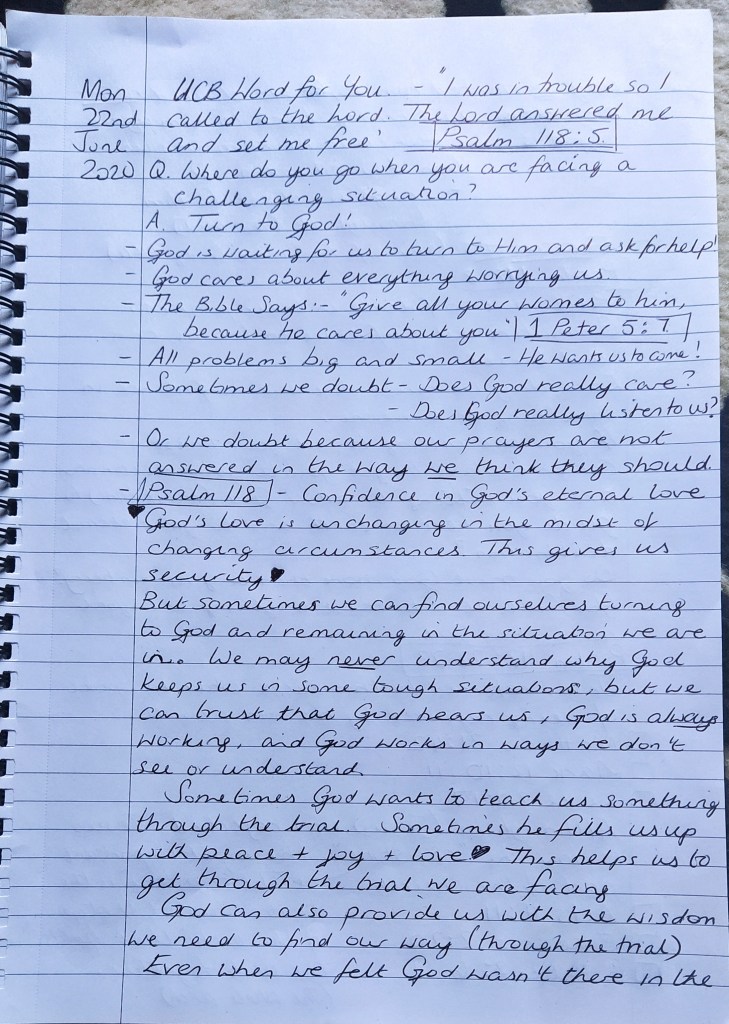 Mon UCB Word for You. - "I was in trouble so I
22nd called to the Lord. The Lord answered me
June and set me free' Psalm 118:5.
2020 Q. Where do you go when you are facing a
challenging situation?
A. Turn to God!
- God is waiting for us to turn to Him and ask for help!
- God cares about everything worrying us.
- The Bible Says:- "Give all your worries to him,
because he cares about you" 1 Peter 5:7
- All problems big and small - He wants us to come!
- Sometimes we doubt - Does God really care?
- Does God really listen to us?
- Or we doubt because our prayers are not
answered in the way we think they should.
- Psalm 118 - Confidence in God's eternal love
♥ God's love is unchanging in the midst of
changing circumstances. This gives us
security ♥
But sometimes we can find ourselves turning
to God and remaining in the situation we are
in. We may never understand why God
keeps us in some tough situations, but we
can trust that God hears us, God is always
working, and God works in ways we don't
see or understand.
Sometimes God wants to teach us something
through the trial. Sometimes he fills us up
with peace + joy + love ♥ This helps us to
get through the trial we are facing
God can also provide us with the wisdom
we need to find our way (through the trial)
Even when we felt God wasn't there in the